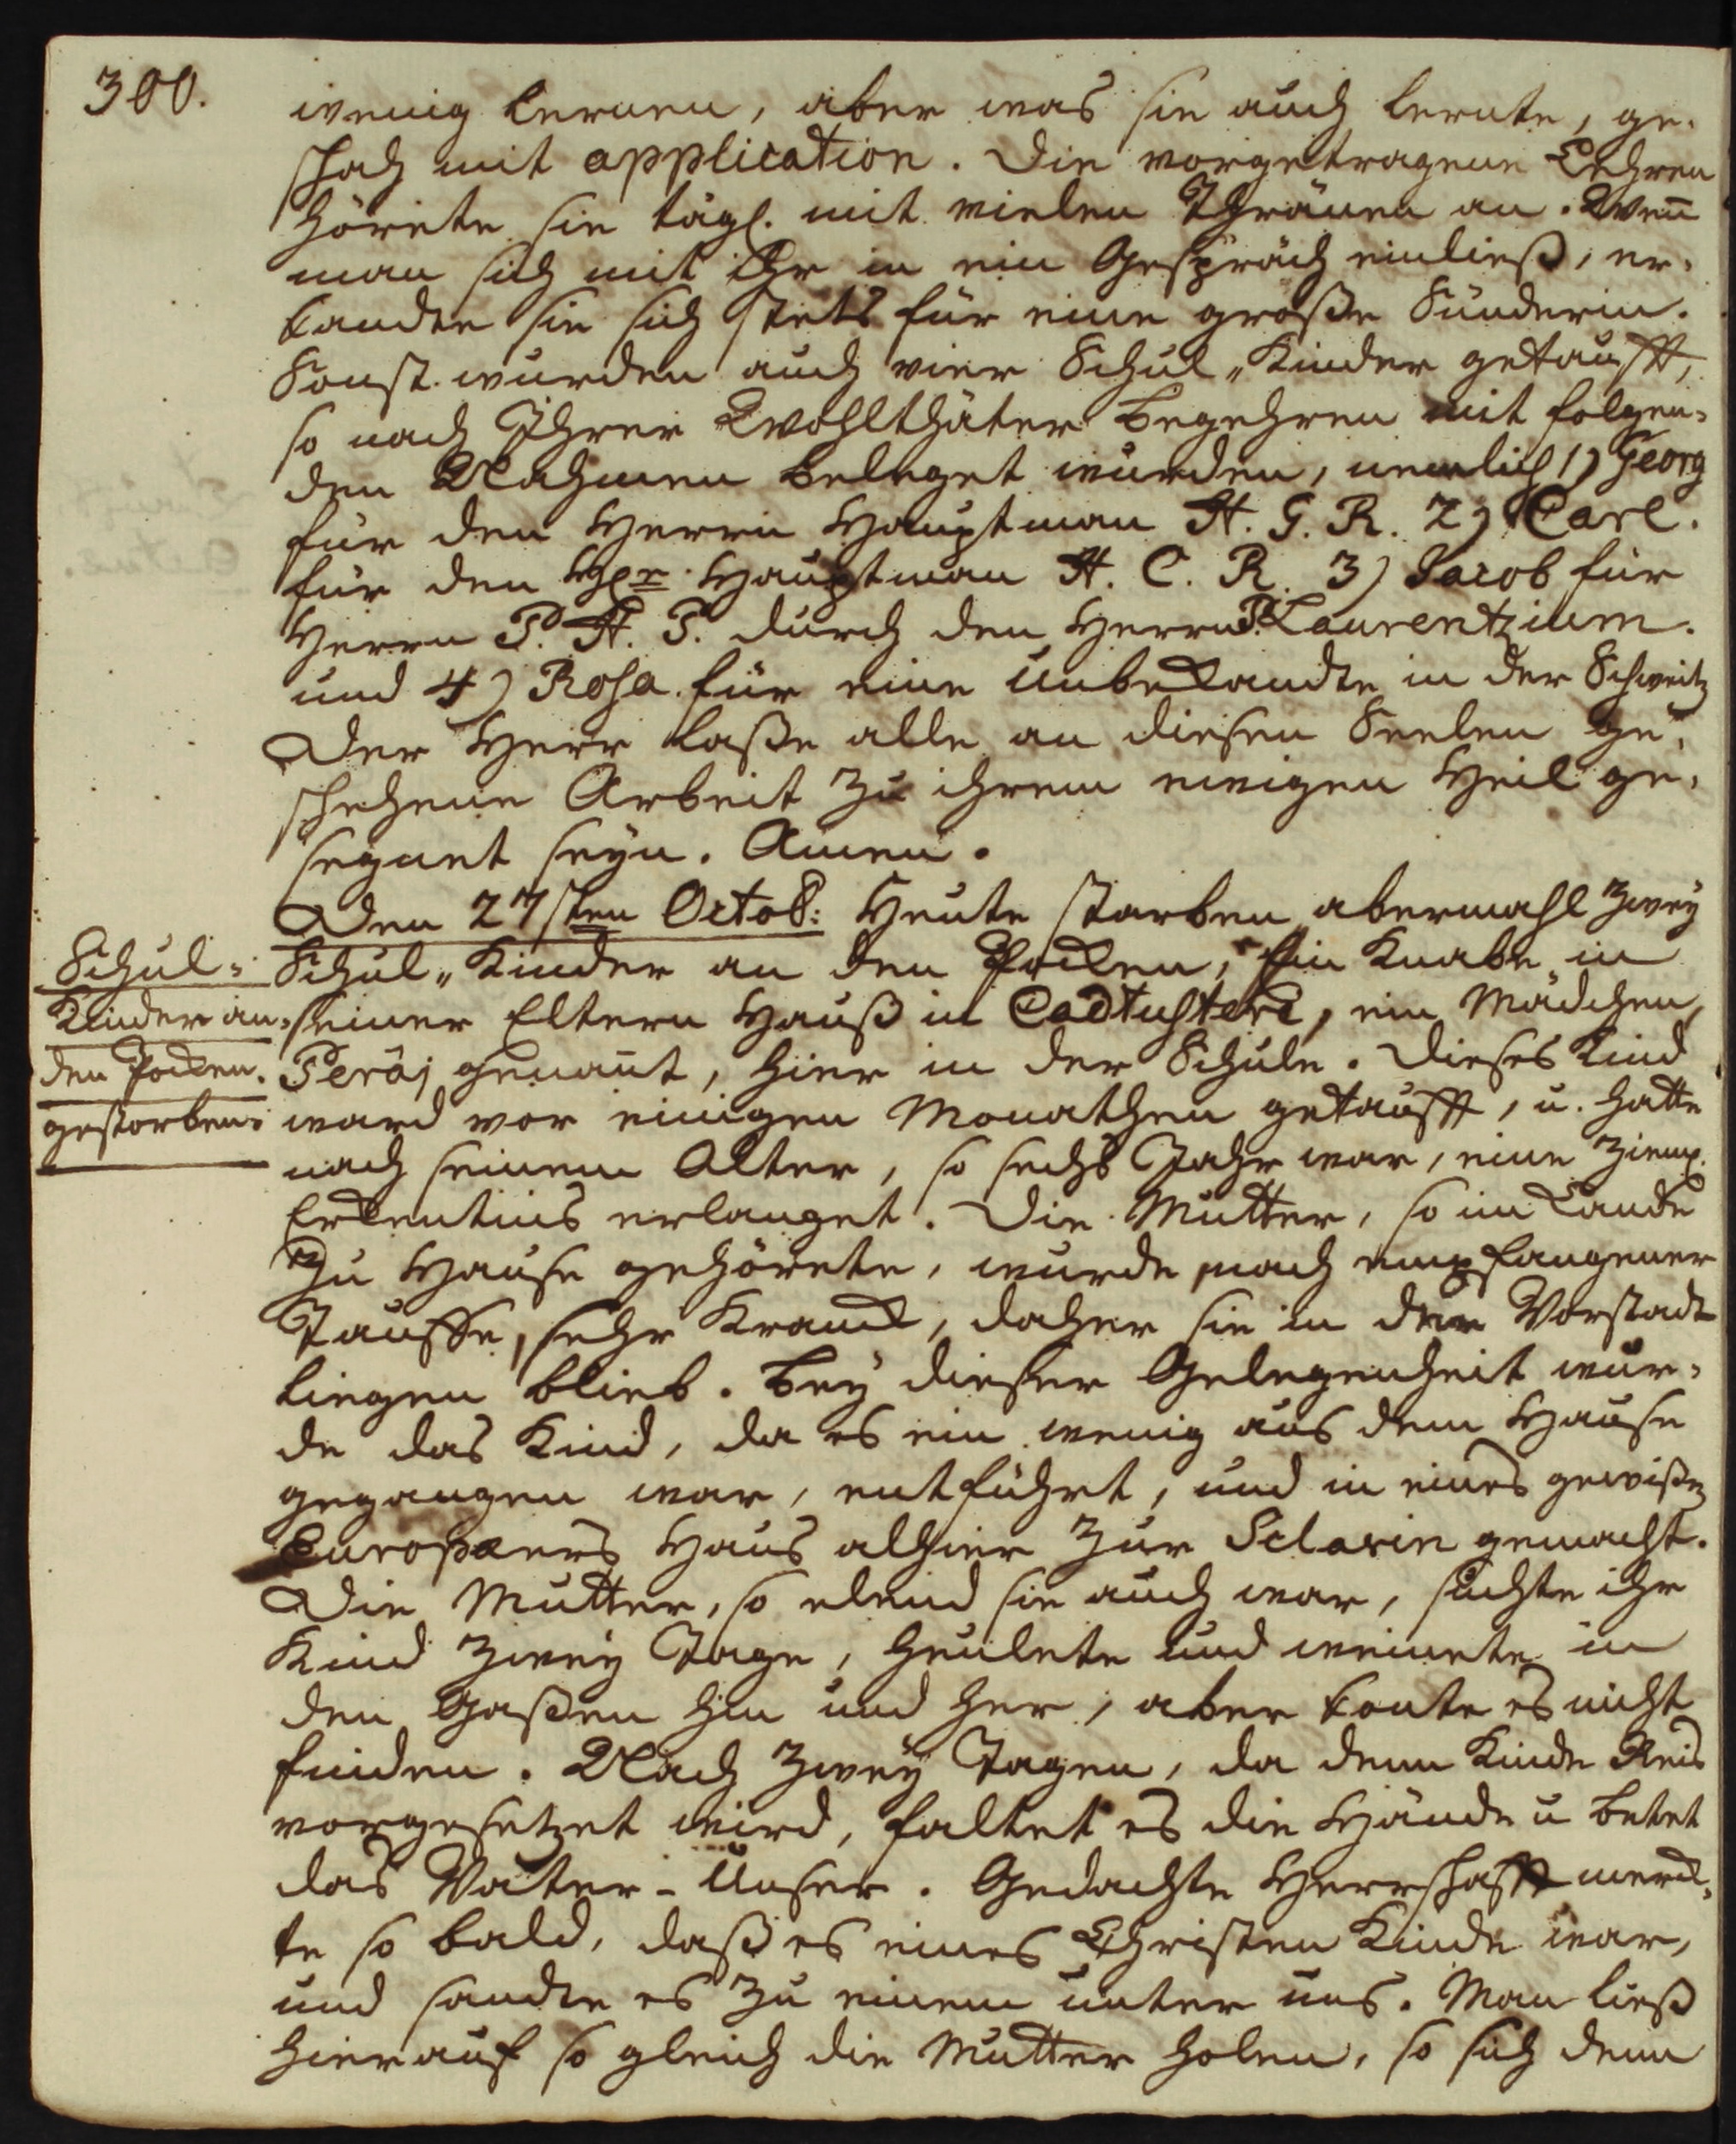 300.
wenig lernen, aber was sie auch lernte, ge-
schah mit application. Die vorgetragene Lehren
hörete sie tägl. mit vielen Thränen an. Weñ
man sich mit ihr in ein Gespräch einließ, er-
kandte sie sich stets für eine große Sünderin.
Sonst wurden auch vier Schul-Kinder getaufft,
so nach Ihrer Wohlthäter Begehren mit folgen-
den Nahmen beleget wurden, nemlich 1) Georg
für den Herrn Hauptman H. G. R. 2) Carl.
für den Hr. Hauptman H. C. R. 3) Jacob für
Herrn P. H. P. durch den Herrn P. Laurentzium.
und 4) Rosa für eine Unbekandte in der Schweitz
Der Herr laße alle an diesen Seelen ge-
schehene Arbeit zu ihrem ewigen Heil ge-
segnet seyn. Amen.
Den 27sten Octob: Heute starben abermahl zwey
Schul-Kinder an den Pocken, ein Knabe in
seiner Eltern Hauß in Cadtuhteri, ein Mädchen,
Peräj genañt, hier in der Schule. Dieses Kind
ward vor einigen Monathen getaufft, u. hatte
nach seinem Alter, so sechs Jahr war, eine ziml.
Erkentniß erlanget. Die Mutter, so im Lande
zu Hause gehörete, wurde nach empfangener
Tauffe, sehr Kranck, daher sie in der Vorstadt
liegen blieb. Bey dieser Gelegenheit wur-
de das Kind, da es ein wenig aus dem Hause
gegangen war, entführt, und in eines gewißen
Europæers Haus alhier zur Sclavin gemacht.
Die Mutter, so elend sie auch war, suchte ihr
Kind zwey Tage, heulete und weinete in
den Gaßen hin und her, aber konte es nicht
finden. Nach zwey Tagen, da dem Kinde Reis
vorgesetzet wird, faltet es die Hände u betet
das Vater-Unser. Gedachte Herrschafft merck-
te so bald, daß es eines Christen Kinde war,
und sandte es zu einem unter uns. Man ließ
hierauf so gleich die Mutter holen, so sich denn
Schul-
Kinder an
den Pocken
gestorben